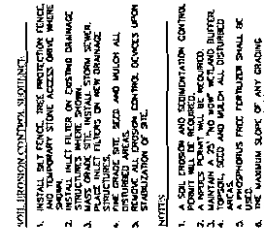 SOIL EROSION CONTROL SEQUENCE:
1. INSTALL SILT FENCE, TREE PROTECTION FENCE,
AND TEMPORARY STONE ACCESS DRIVE WHERE
SHOWN.
2. INSTALL INLET FILTER ON EXISTING DRAINAGE
STRUCTURES WHERE SHOWN.
3. MASS GRADE SITE. INSTALL STORM SEWER.
PLACE INLET FILTERS ON NEW DRAINAGE
STRUCTURES.
4. FINE GRADE SITE. SEED AND MULCH ALL
DISTURBED AREAS.
5. REMOVE ALL EROSION CONTROL DEVICES UPON
STABILIZATION OF SITE.
NOTES
1. A SOIL EROSION AND SEDIMENTATION CONTROL
PERMIT WILL BE REQUIRED.
2. A NPDES PERMIT WILL BE REQUIRED.
3. MAINTAIN A 25' "NO MOW" WETLAND BUFFER.
4. TOPSOIL, SEED AND MULCH ALL DISTURBED
AREAS.
5. A PHOSPHORUS FREE FERTILIZER SHALL BE
USED.
6. THE MAXIMUM SLOPE OF ANY GRADING